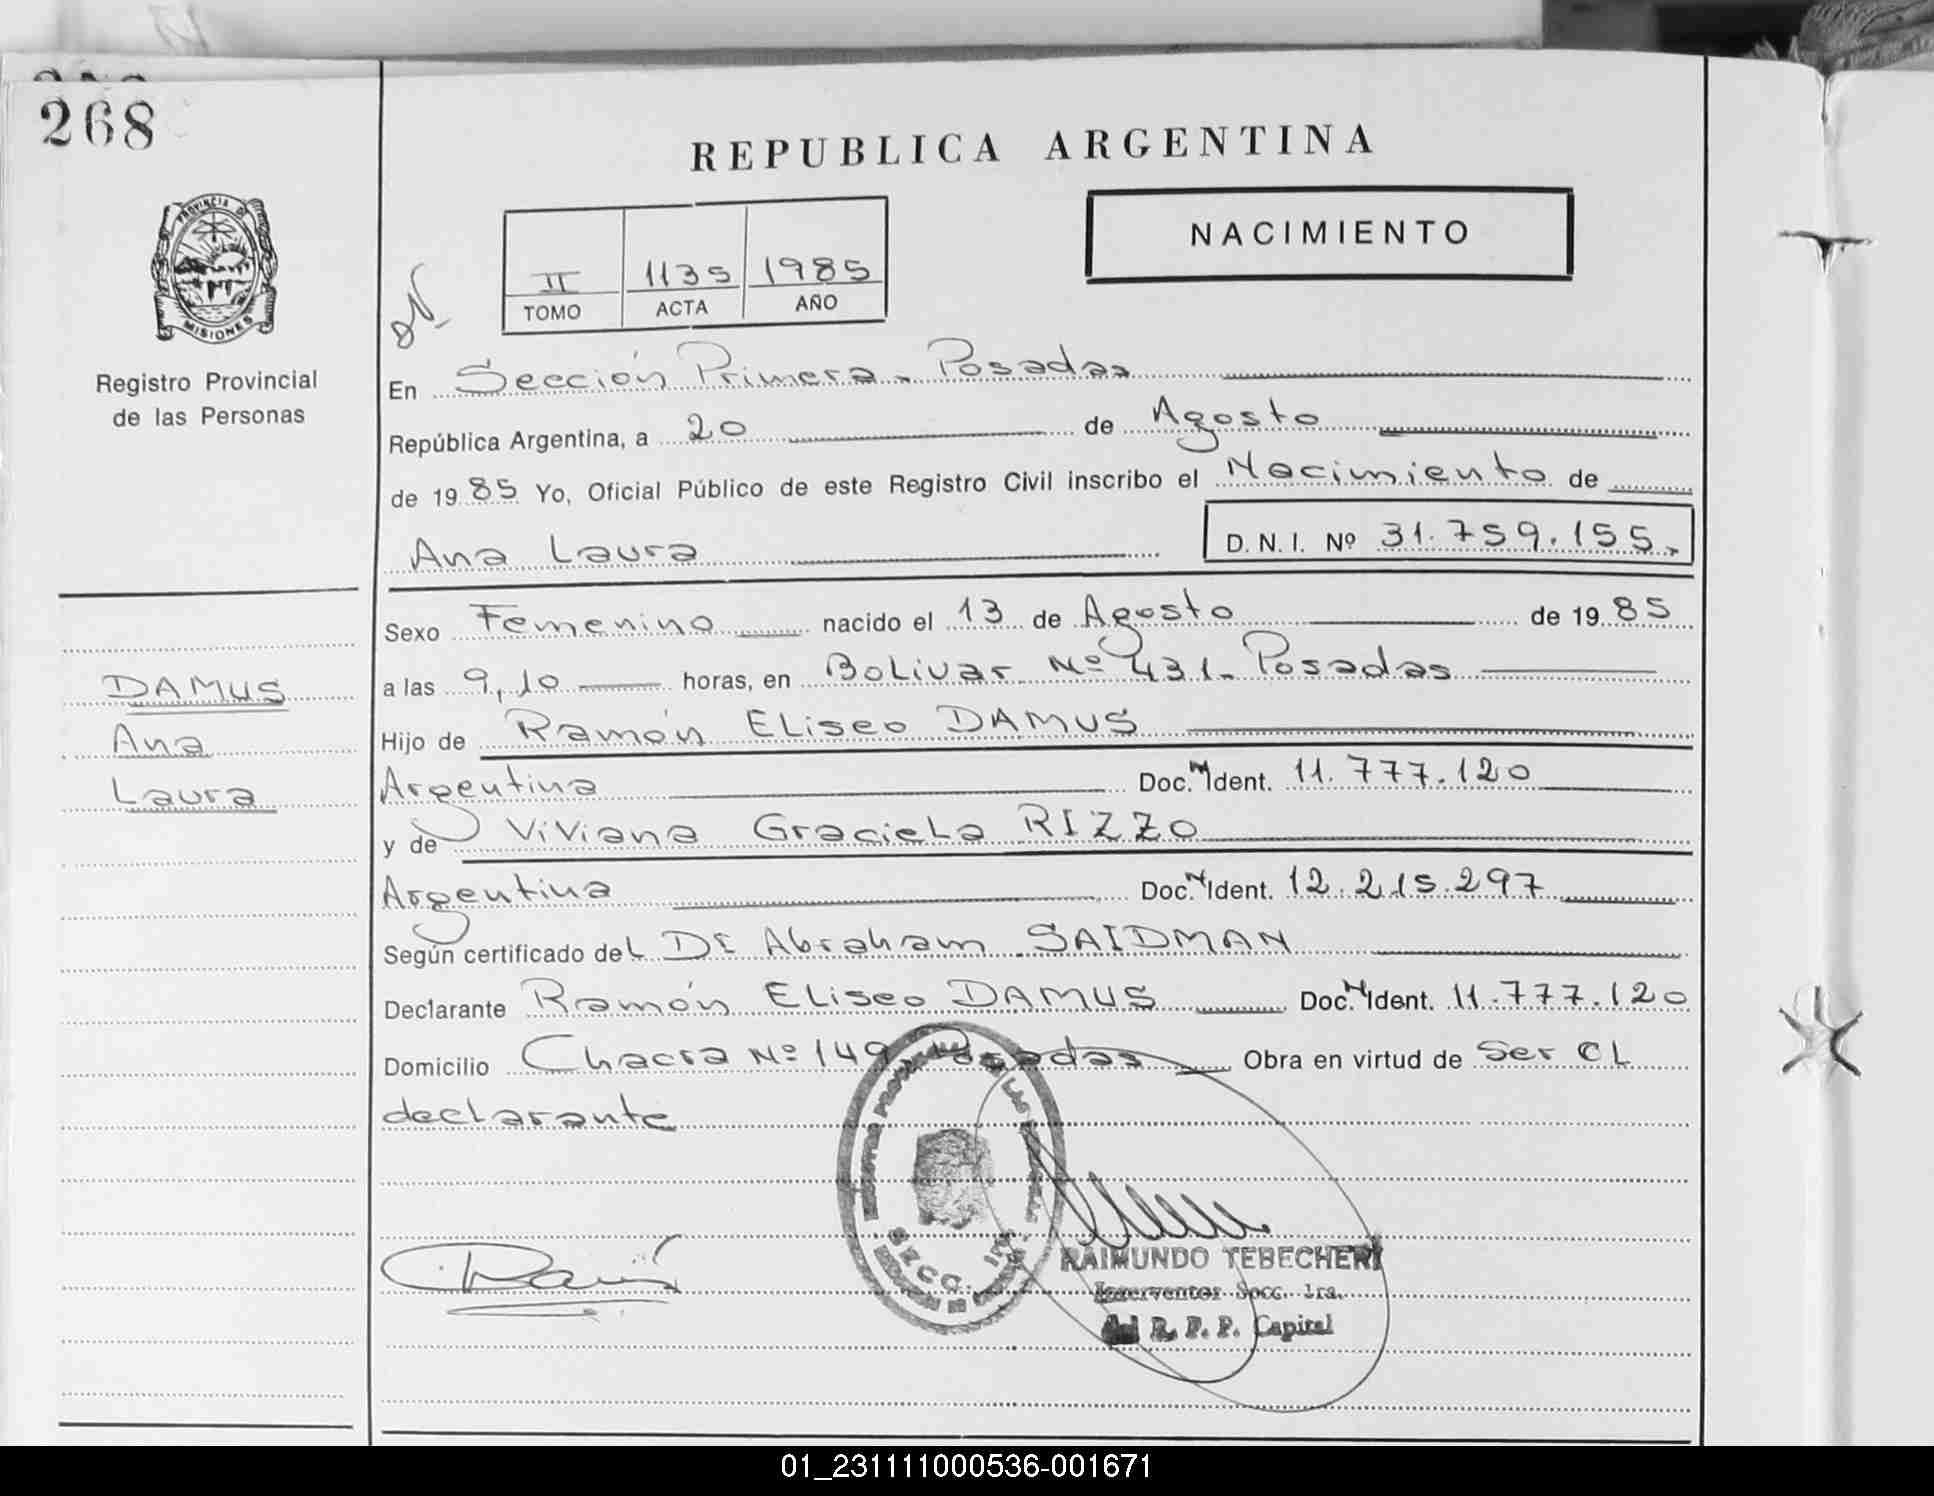 268
REPUBLICA ARGENTINA
PROVINCIA DE
MISIONES
Registro Provincial
de las Personas
II 1135 1985
TOMO ACTA AÑO
NACIMIENTO
En Sección Primera - Posadas
República Argentina, a 20 de Agosto
de 1985 Yo, Oficial Público de este Registro Civil inscribo el Nacimiento de
Ana Laura D.N.I. Nº 31.759.155.
Sexo Femenino nacido el 13 de Agosto de 1985
a las 9,10 horas, en Bolivar Nº 431- Posadas
Hijo de Ramón Eliseo DAMUS
Argentina Doc. N Ident. 11.777.120
y de Viviana Graciela RIZZO
Argentina Doc. N Ident. 12.215.297
Según certificado del Dr Abraham SAIDMAN
Declarante Ramón Eliseo DAMUS Doc. N Ident. 11.777.120
Domicilio Chacra Nº 149 Posadas Obra en virtud de Ser el
declarante
DAMUS
Ana
Laura
SECC. 1ra
RAIMUNDO TEBECHERI
Interventor Secc. 1ra.
del R. P. P. Capital
01_231111000536-001671